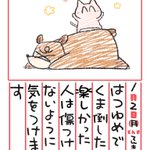 1月2日
はつゆめで
くま倒した
楽しかった
人は傷つけ
ないように
気をつけま
す